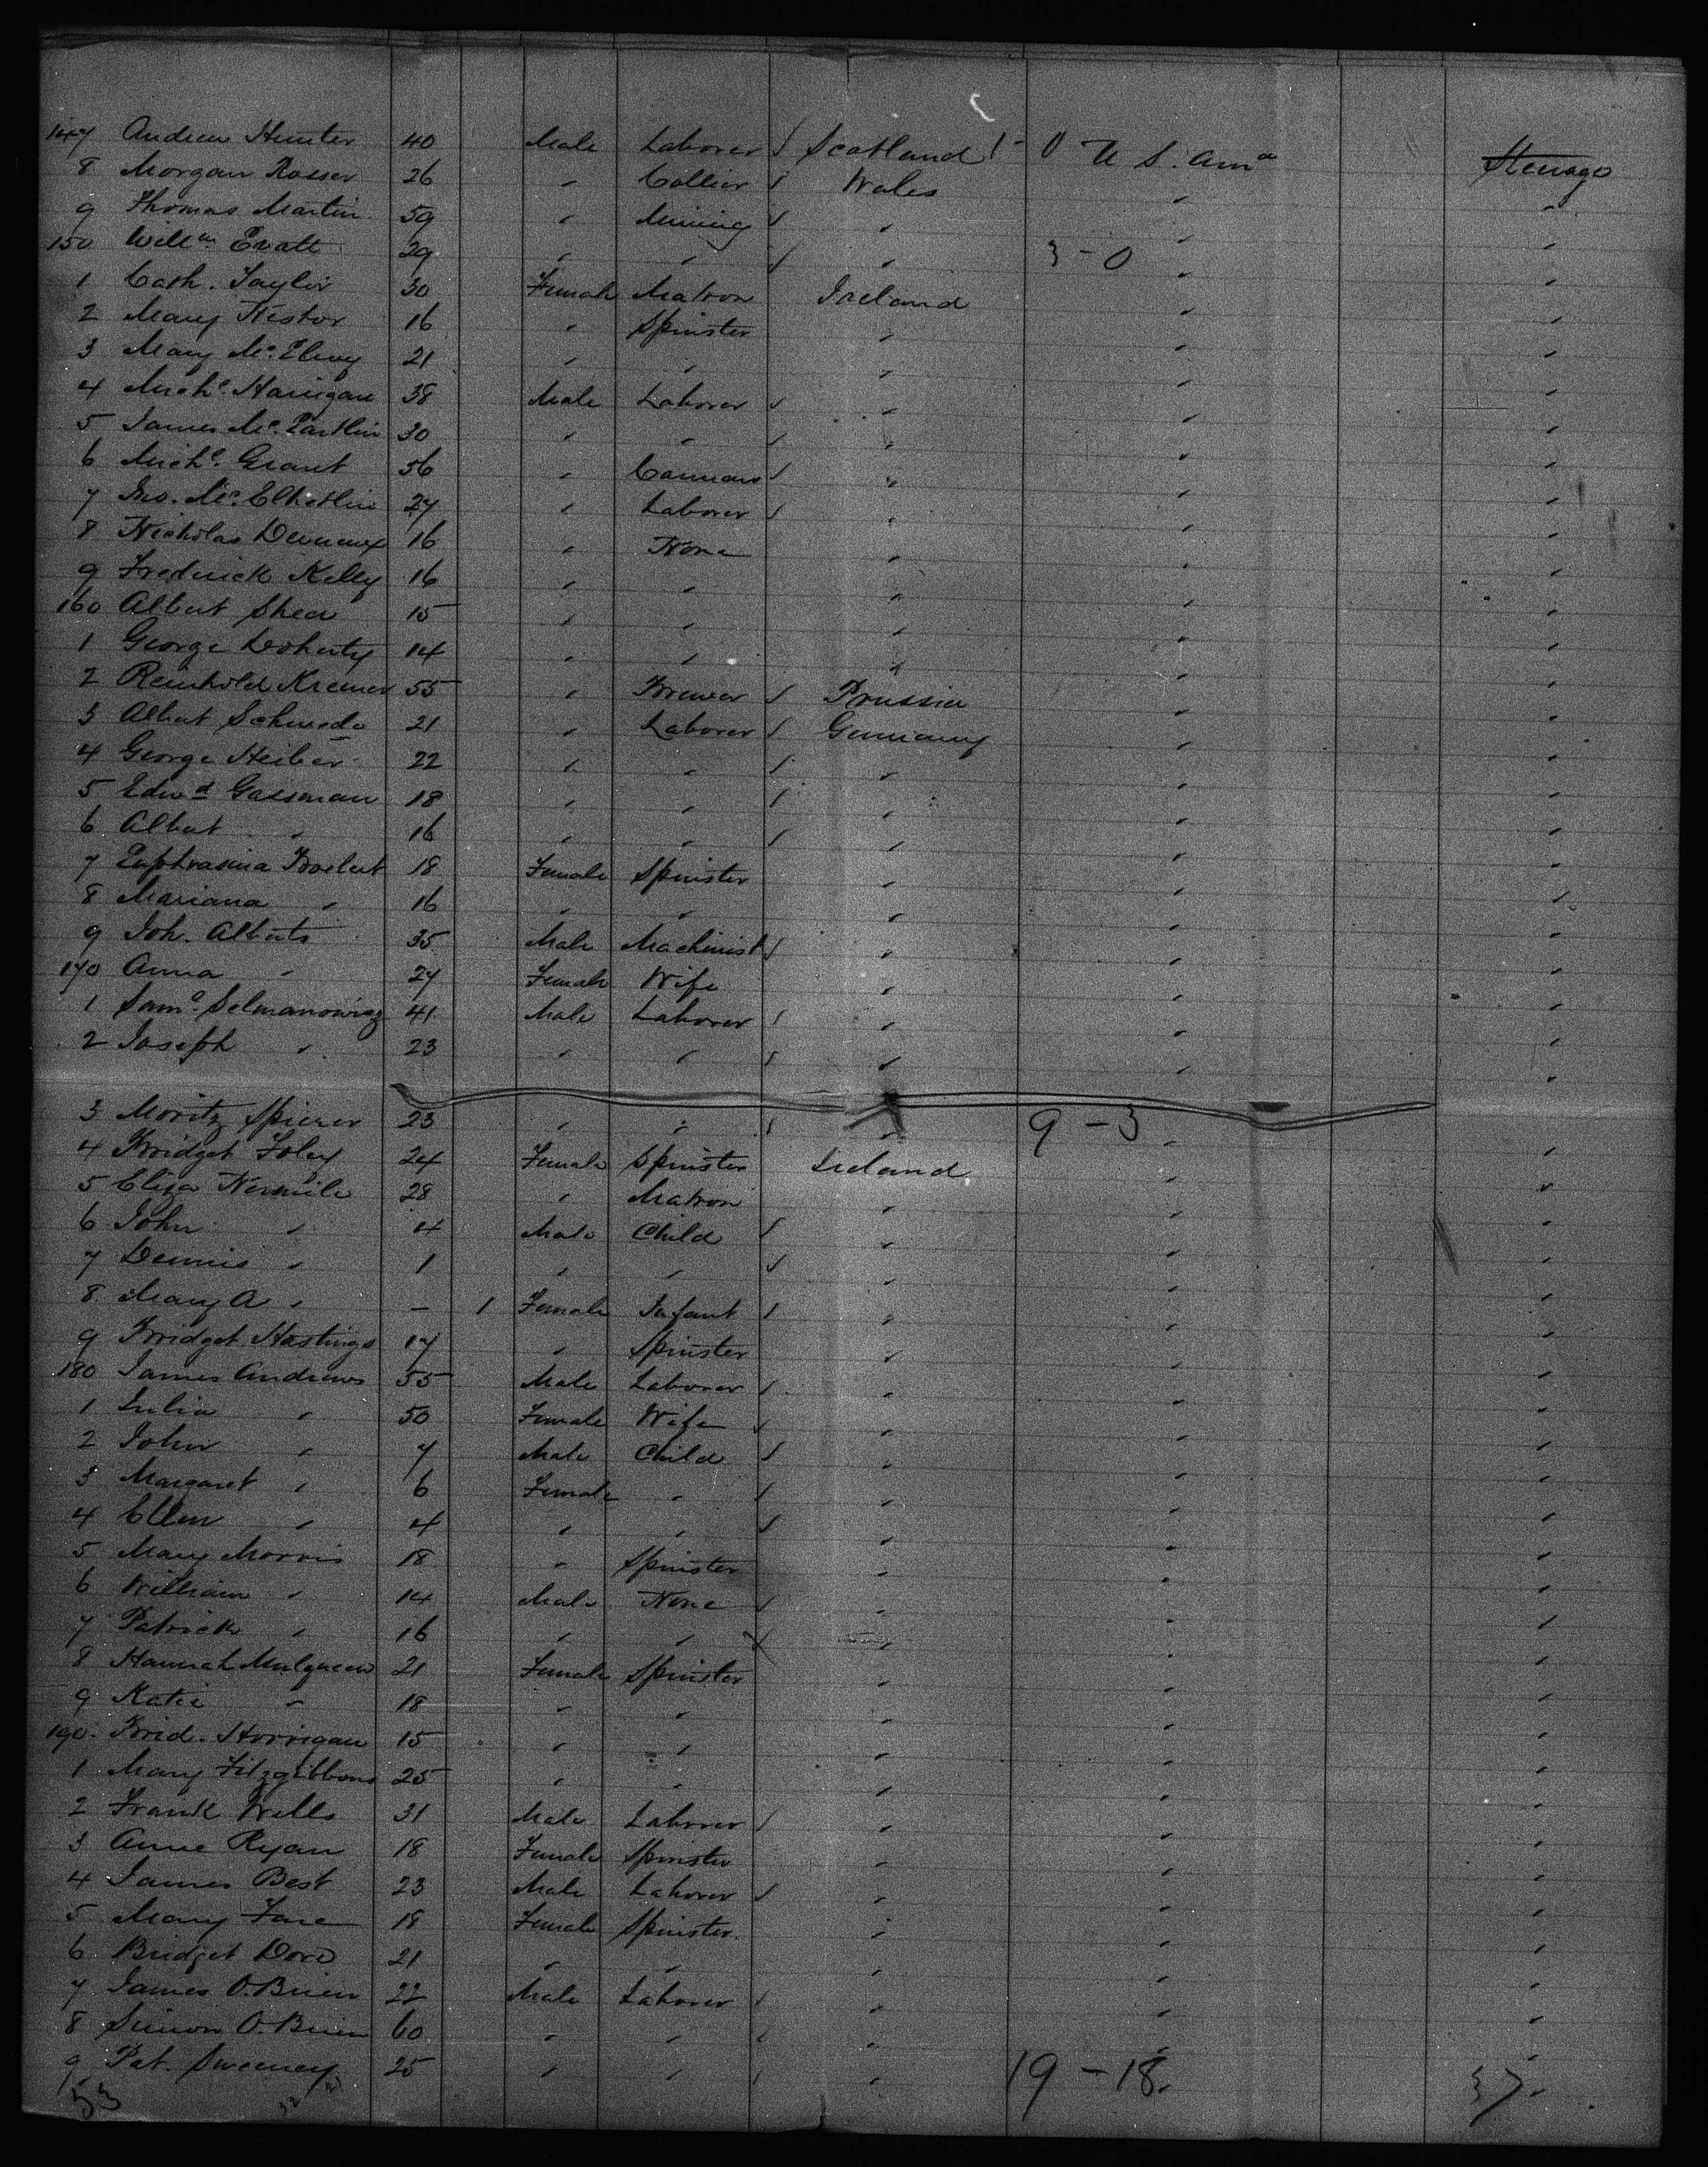 147 Andrew Hunter 40 Male Laborer Scotland 1-0 U S. Ama Steerage
8 Morgan Rosser 26 " Collier Wales " "
9 Thomas Martin 59 " Mining " " "
150 Willm Evatt 29 " " " 3-0 " "
1 Cath. Taylor 30 Female Matron Ireland " "
2 Mary Nestor 16 " Spinster " " "
3 Mary Mc Elroy 21 " " " " "
4 Michl Hanigan 38 Male Laborer " " "
5 James Mc Partlin 30 " " " " "
6 Michl Grant 56 " " " "
7 Jno. Mc 27 " Laborer " " "
8 Nicholas 16 " None " " "
9 Frederick Kelly 16 " " " " "
160 Albert Shea 15 " " " " "
1 George Doherty 14 " " " " "
2 Reinhold Kremer 55 " Brewer Prussia " "
3 Albert Schwede 21 " Laborer Germany " "
4 George Heiber 22 " " " " "
5 Edwd Gassman 18 " " " " "
6 Albert " 16 " " " " "
7 Euphrasina 18 Female Spinster " " "
8 Mariana " 16 " " " " "
9 Joh. Alberts 35 Male Machinist " " "
170 Anna " 27 Female Wife " " "
1 Saml Selmanowicz 41 Male Laborer " " "
2 Joseph " 23 " " " " "
3 Moritz Spierer 23 " " " 9-3 " "
4 Bridget Foley 24 Female Spinster Ireland " "
5 Eliza Nermile 28 " Matron " " "
6 John " 4 Male Child " " "
7 Dennis " 1 " " " " "
8 Mary A " - 1 Female Infant " " "
9 Bridget Hastings 17 " Spinster " " "
180 James Andrews 55 Male Laborer " " "
1 Julia " 50 Female Wife " " "
2 John " 7 Male Child " " "
3 Margaret " 6 Female " " " "
4 Ellen " 4 " " " " "
5 Mary Morris 18 " Spinster " " "
6 William " 14 Male None " " "
7 Patrick " 16 " " " " "
8 Hannah Mulqueen 21 Female Spinster " " "
9 Katie " 18 " " " " "
190 Brid. Horrigan 15 " " " " "
1 Mary Fitzgibbons 25 " " " " "
2 Frank Wells 31 Male Laborer " " "
3 Anne Ryan 18 Female Spinster " " "
4 James Best 23 Male Laborer " " "
5 Mary Fane 18 Female Spinster " " "
6 Bridget Dore 21 " " " " "
7 James O.Brien 22 Male Laborer " " "
8 Simon O.Brien 60 " " " " "
9 Pat. Sweeney 25 " " " 19-18 " "
53 32 21 37